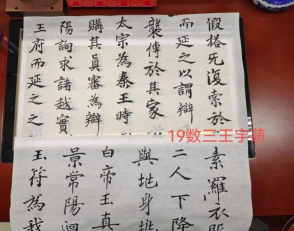 假榻无復索於
而延之以謂辯
襲傳於其家
太宗為秦王時
購其真審為辯
陽詢求諸越實
王府而延之之
素羅衣服
二人下降
與地身挑
白帝王真
景常陽迴
玉符為我
19数三王宇萌